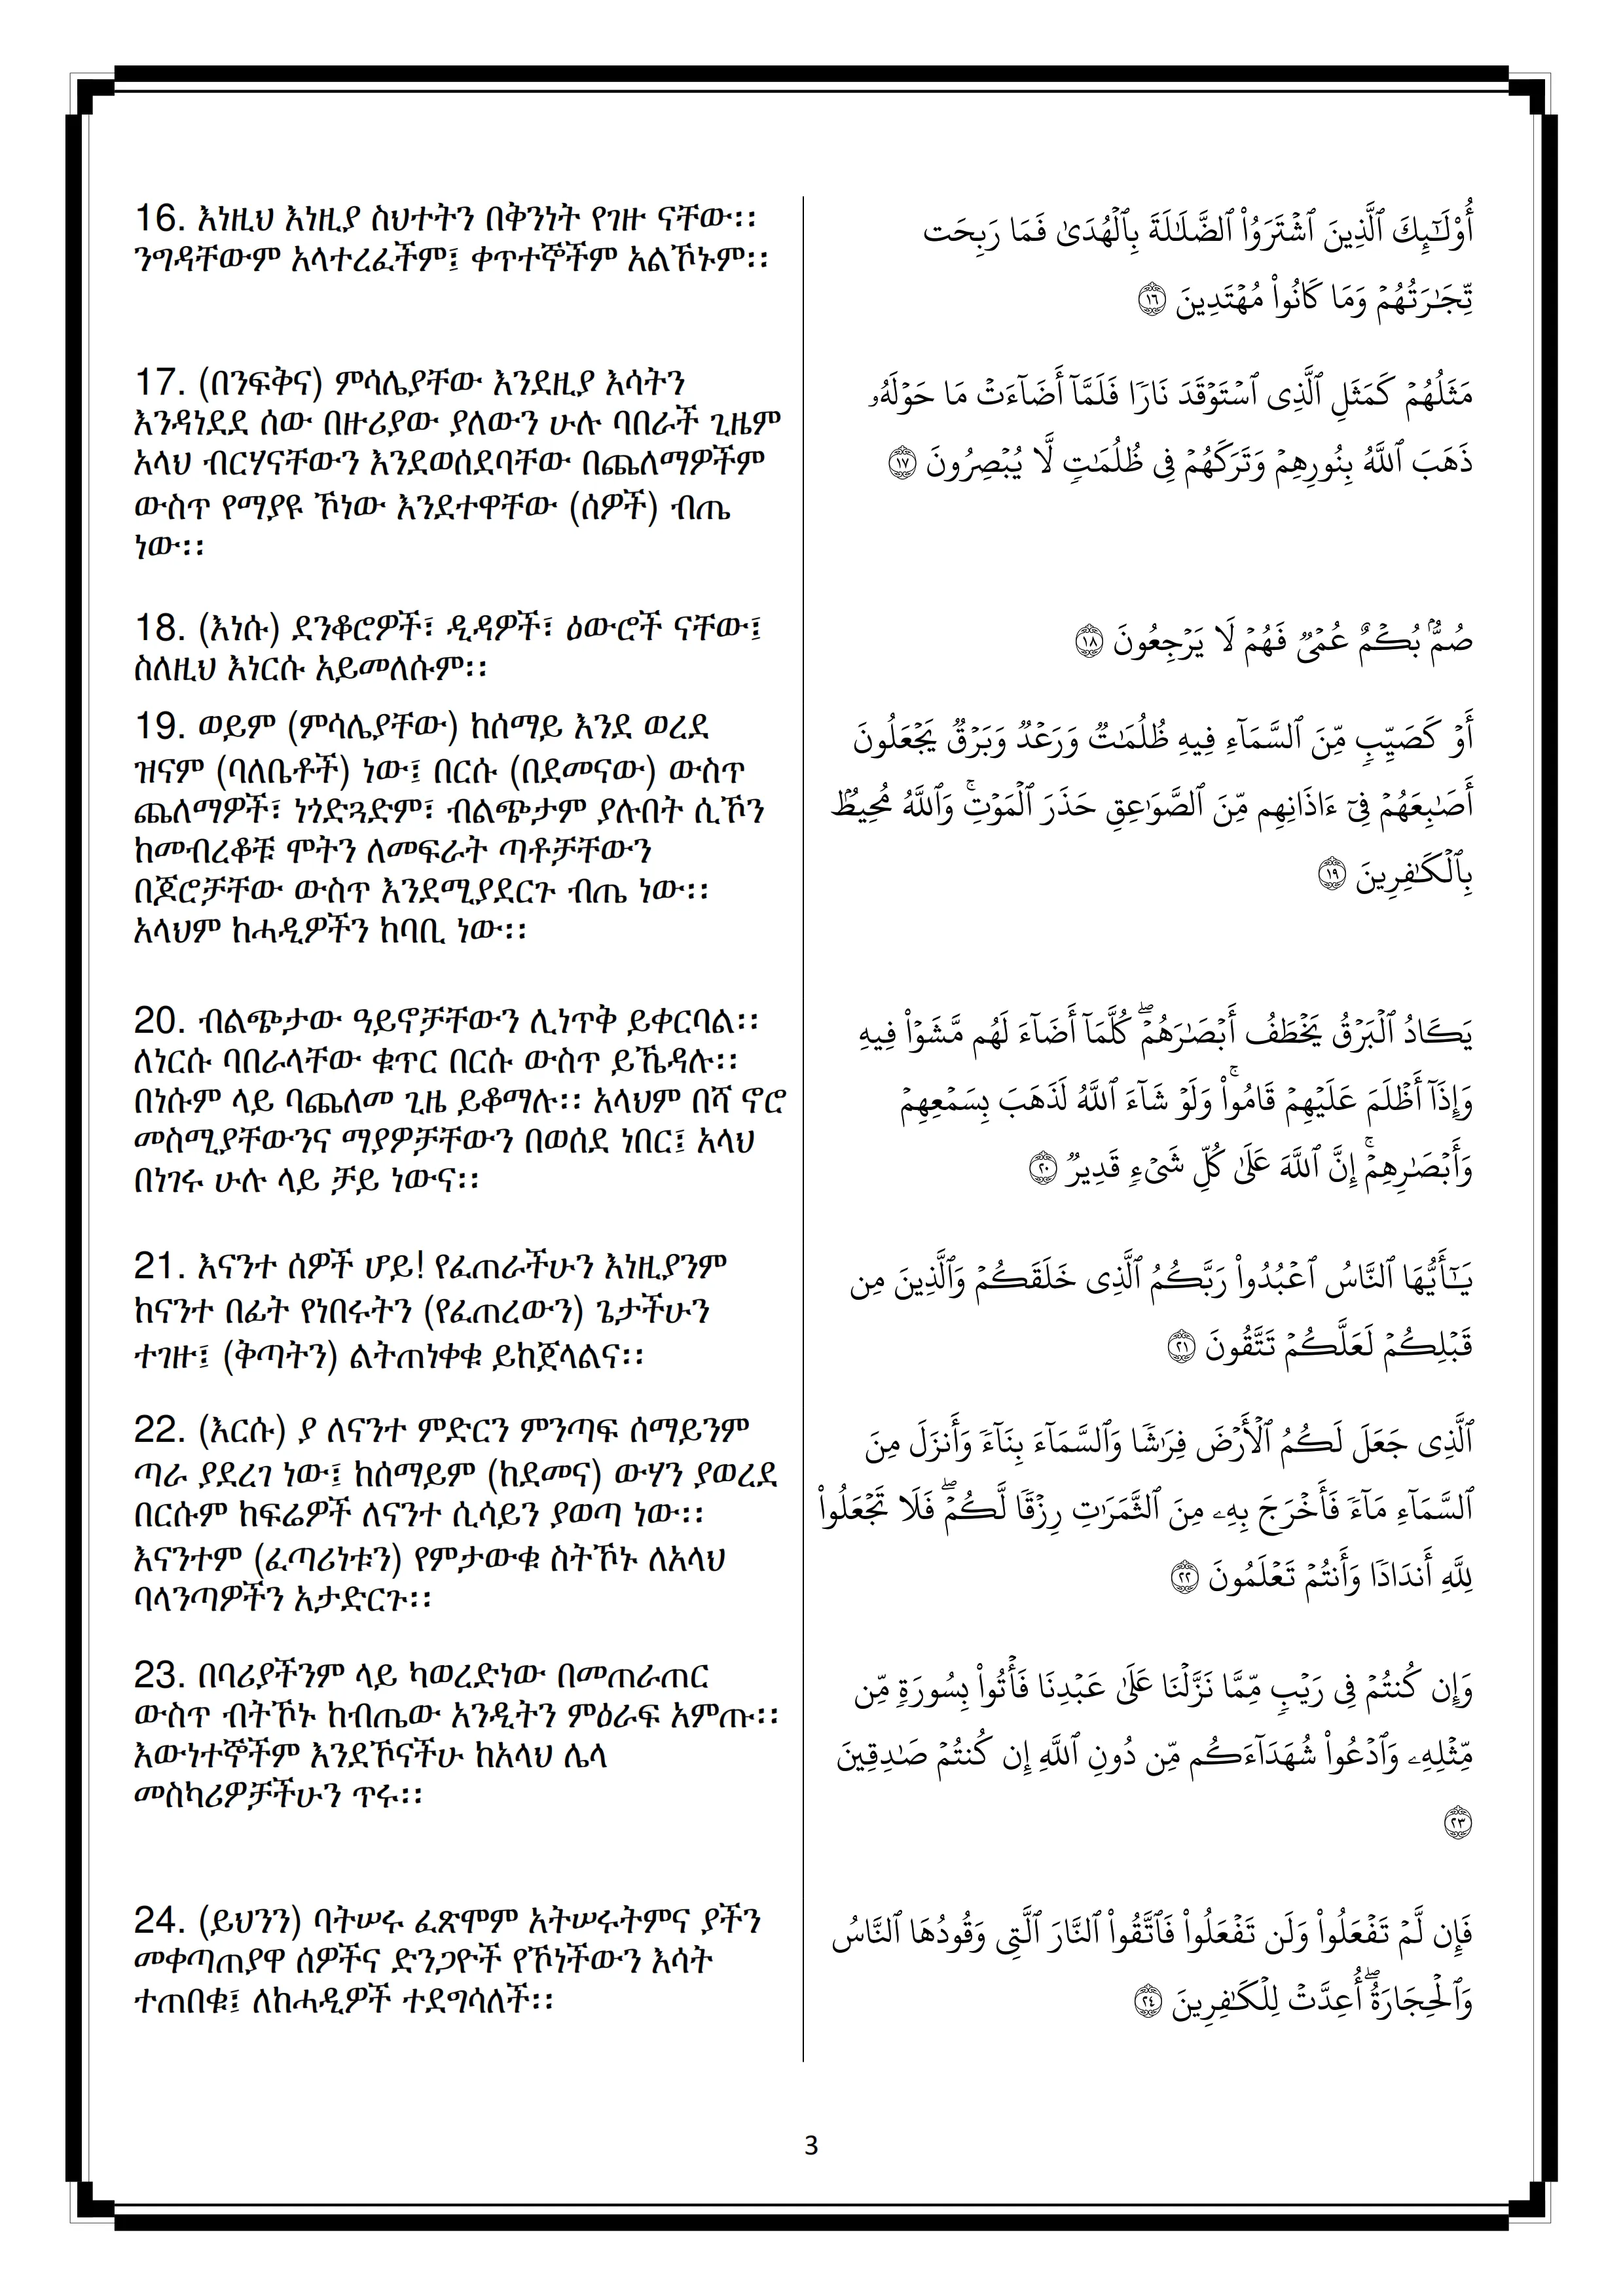 16. እነዚህ እነዚያ ስህተትን በቅንነት የገዙ ናቸው፡፡
ንግዳቸውም አላተረፈችም፤ ቀጥተኞችም አልኾኑም፡፡
أُوْلَـٰٓئِكَ ٱلَّذِينَ ٱشۡتَرَوُاْ ٱلضَّلَـٰلَةَ بِٱلۡهُدَىٰ فَمَا رَبِحَت
تِّجَـٰرَتُهُمۡ وَمَا كَانُواْ مُهۡتَدِينَ ١٦
17. (በንፍቅና) ምሳሌያቸው እንደዚያ እሳትን
እንዳነደደ ሰው በዙሪያው ያለውን ሁሉ ባበራች ጊዜም
አላህ ብርሃናቸውን እንደወሰደባቸው በጨለማዎችም
ውስጥ የማያዩ ኾነው እንደተዋቸው (ሰዎች) ብጤ
ነው፡፡
مَثَلُهُمۡ كَمَثَلِ ٱلَّذِى ٱسۡتَوۡقَدَ نَارٗا فَلَمَّآ أَضَآءَتۡ مَا حَوۡلَهُۥ
ذَهَبَ ٱللَّهُ بِنُورِهِمۡ وَتَرَكَهُمۡ فِى ظُلُمَـٰتٖ لَّا يُبۡصِرُونَ ١٧
18. (እነሱ) ደንቆሮዎች፣ ዲዳዎች፣ ዕውሮች ናቸው፤
ስለዚህ እነርሱ አይመለሱም፡፡
صُمُّۢ بُكۡمٌ عُمۡىٞ فَهُمۡ لَا يَرۡجِعُونَ ١٨
19. ወይም (ምሳሌያቸው) ከሰማይ እንደ ወረደ
ዝናም (ባለቤቶች) ነው፤ በርሱ (በደመናው) ውስጥ
ጨለማዎች፣ ነጎድጓድም፣ ብልጭታም ያሉበት ሲኾን
ከመብረቆቹ ሞትን ለመፍራት ጣቶቻቸውን
በጆሮቻቸው ውስጥ እንደሚያደርጉ ብጤ ነው፡፡
አላህም ከሓዲዎችን ከባቢ ነው፡፡
أَوۡ كَصَيِّبٖ مِّنَ ٱلسَّمَآءِ فِيهِ ظُلُمَـٰتٞ وَرَعۡدٞ وَبَرۡقٞ يَجۡعَلُونَ
أَصَـٰبِعَهُمۡ فِىٓ ءَاذَانِهِم مِّنَ ٱلصَّوَٰعِقِ حَذَرَ ٱلۡمَوۡتِۚ وَٱللَّهُ مُحِيطُۢ
بِٱلۡكَـٰفِرِينَ ١٩
20. ብልጭታው ዓይኖቻቸውን ሊነጥቅ ይቀርባል፡፡
ለነርሱ ባበራላቸው ቁጥር በርሱ ውስጥ ይኼዳሉ፡፡
በነሱም ላይ ባጨለመ ጊዜ ይቆማሉ፡፡ አላህም በሻ ኖሮ
መስሚያቸውንና ማያዎቻቸውን በወሰደ ነበር፤ አላህ
በነገሩ ሁሉ ላይ ቻይ ነውና፡፡
يَكَادُ ٱلۡبَرۡقُ يَخۡطَفُ أَبۡصَـٰرَهُمۡۖ كُلَّمَآ أَضَآءَ لَهُم مَّشَوۡاْ فِيهِ
وَإِذَآ أَظۡلَمَ عَلَيۡهِمۡ قَامُواْۚ وَلَوۡ شَآءَ ٱللَّهُ لَذَهَبَ بِسَمۡعِهِمۡ
وَأَبۡصَـٰرِهِمۡۚ إِنَّ ٱللَّهَ عَلَىٰ كُلِّ شَىۡءٖ قَدِيرٞ ٢٠
21. እናንተ ሰዎች ሆይ! የፈጠራችሁን እነዚያንም
ከናንተ በፊት የነበሩትን (የፈጠረውን) ጌታችሁን
ተገዙ፤ (ቅጣትን) ልትጠነቀቁ ይከጀላልና፡፡
يَـٰٓأَيُّهَا ٱلنَّاسُ ٱعۡبُدُواْ رَبَّكُمُ ٱلَّذِى خَلَقَكُمۡ وَٱلَّذِينَ مِن
قَبۡلِكُمۡ لَعَلَّكُمۡ تَتَّقُونَ ٢١
22. (እርሱ) ያ ለናንተ ምድርን ምንጣፍ ሰማይንም
ጣራ ያደረገ ነው፤ ከሰማይም (ከደመና) ውሃን ያወረደ
በርሱም ከፍሬዎች ለናንተ ሲሳይን ያወጣ ነው፡፡
እናንተም (ፈጣሪነቱን) የምታውቁ ስትኾኑ ለአላህ
ባላንጣዎችን አታድርጉ፡፡
ٱلَّذِى جَعَلَ لَكُمُ ٱلۡأَرۡضَ فِرَٰشٗا وَٱلسَّمَآءَ بِنَآءٗ وَأَنزَلَ مِنَ
ٱلسَّمَآءِ مَآءٗ فَأَخۡرَجَ بِهِۦ مِنَ ٱلثَّمَرَٰتِ رِزۡقٗا لَّكُمۡۖ فَلَا تَجۡعَلُواْ
لِلَّهِ أَندَادٗا وَأَنتُمۡ تَعۡلَمُونَ ٢٢
23. በባሪያችንም ላይ ካወረድነው በመጠራጠር
ውስጥ ብትኾኑ ከብጤው አንዲትን ምዕራፍ አምጡ፡፡
እውነተኞችም እንደኾናችሁ ከአላህ ሌላ
መስካሪዎቻችሁን ጥሩ፡፡
وَإِن كُنتُمۡ فِى رَيۡبٖ مِّمَّا نَزَّلۡنَا عَلَىٰ عَبۡدِنَا فَأۡتُواْ بِسُورَةٖ مِّن
مِّثۡلِهِۦ وَٱدۡعُواْ شُهَدَآءَكُم مِّن دُونِ ٱللَّهِ إِن كُنتُمۡ صَـٰدِقِينَ
٢٣
24. (ይህንን) ባትሠሩ ፈጽሞም አትሠሩትምና ያችን
መቀጣጠያዋ ሰዎችና ድንጋዮች የኾነችውን እሳት
ተጠበቁ፤ ለከሓዲዎች ተደግሳለች፡፡
فَإِن لَّمۡ تَفۡعَلُواْ وَلَن تَفۡعَلُواْ فَٱتَّقُواْ ٱلنَّارَ ٱلَّتِى وَقُودُهَا ٱلنَّاسُ
وَٱلۡحِجَارَةُۖ أُعِدَّتۡ لِلۡكَـٰفِرِينَ ٢٤
3